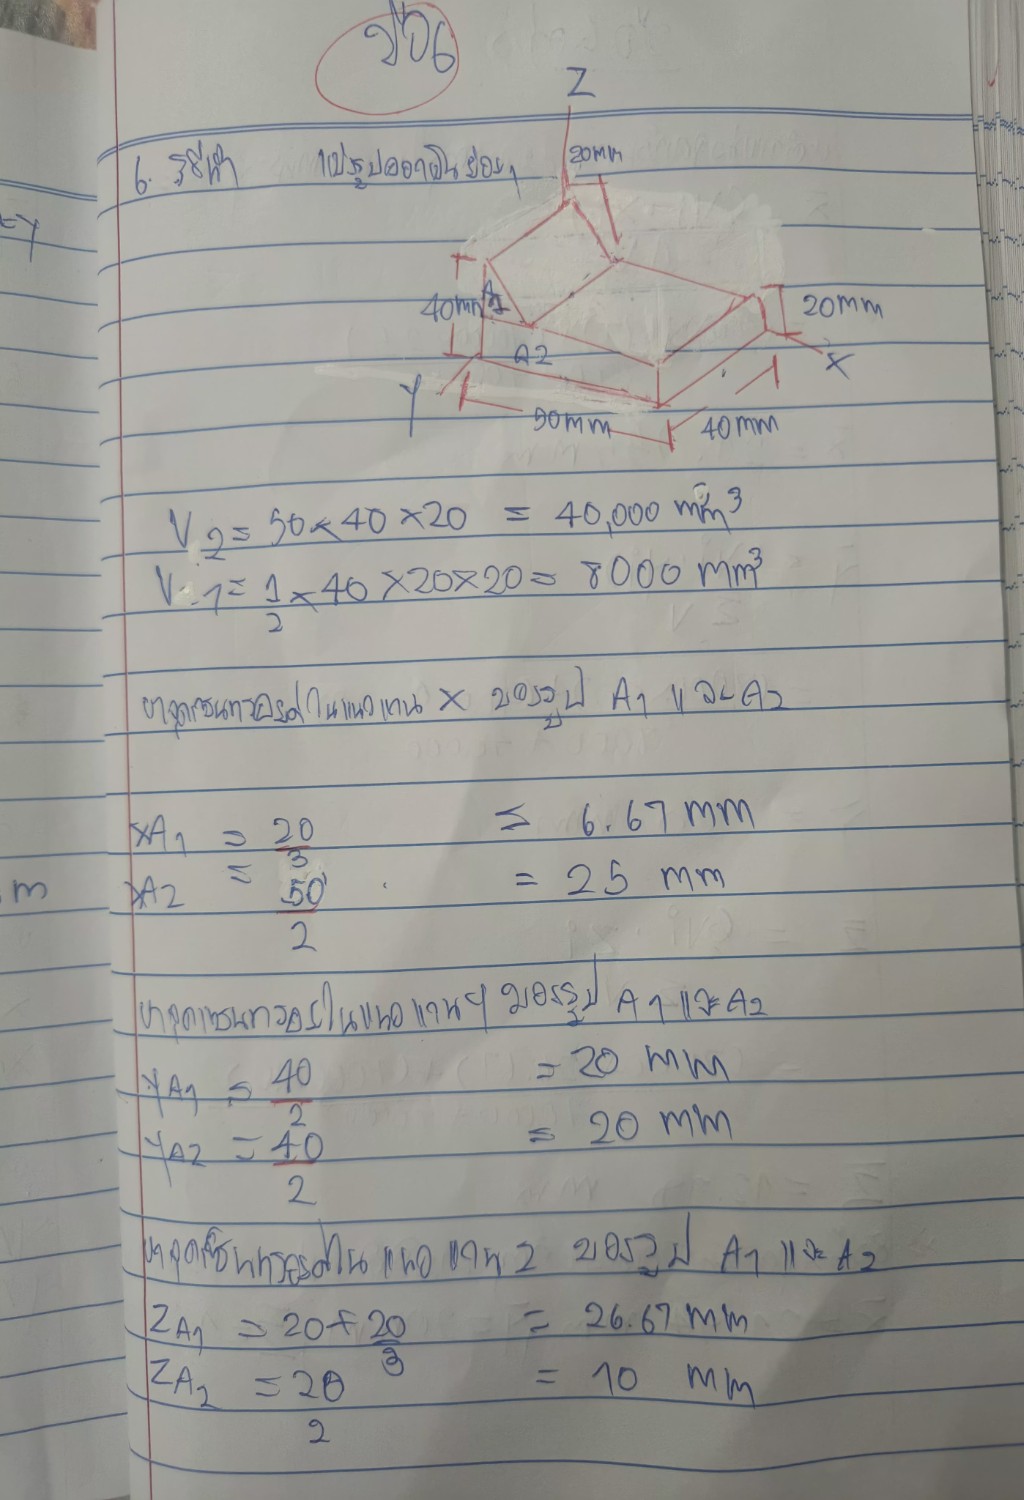 ข้อ6
Z
6. วิธีทำ แบ่งรูปออกเป็นย่อยๆ
20mm
40mm
A1
20mm
A2
X
Y
50mm
40mm
V2 = 50 × 40 × 20 = 40,000 mm³
V1 = 1/2 × 40 × 20 × 20 = 8000 mm³
หาจุดเซนทรอยด์ในแนวแกน X ของรูป A1 และ A2
XA1 = 20/3 = 6.67 mm
XA2 = 50/2 = 25 mm
m
หาจุดเซนทรอยในแนวแกน Y ของรูป A1 และ A2
YA1 = 40/2 = 20 mm
YA2 = 40/2 = 20 mm
หาจุดเซ็นทรอยด์ในแนวแกน Z ของรูป A1 และ A2
ZA1 = 20 + 20/3 = 26.67 mm
ZA2 = 20/2 = 10 mm